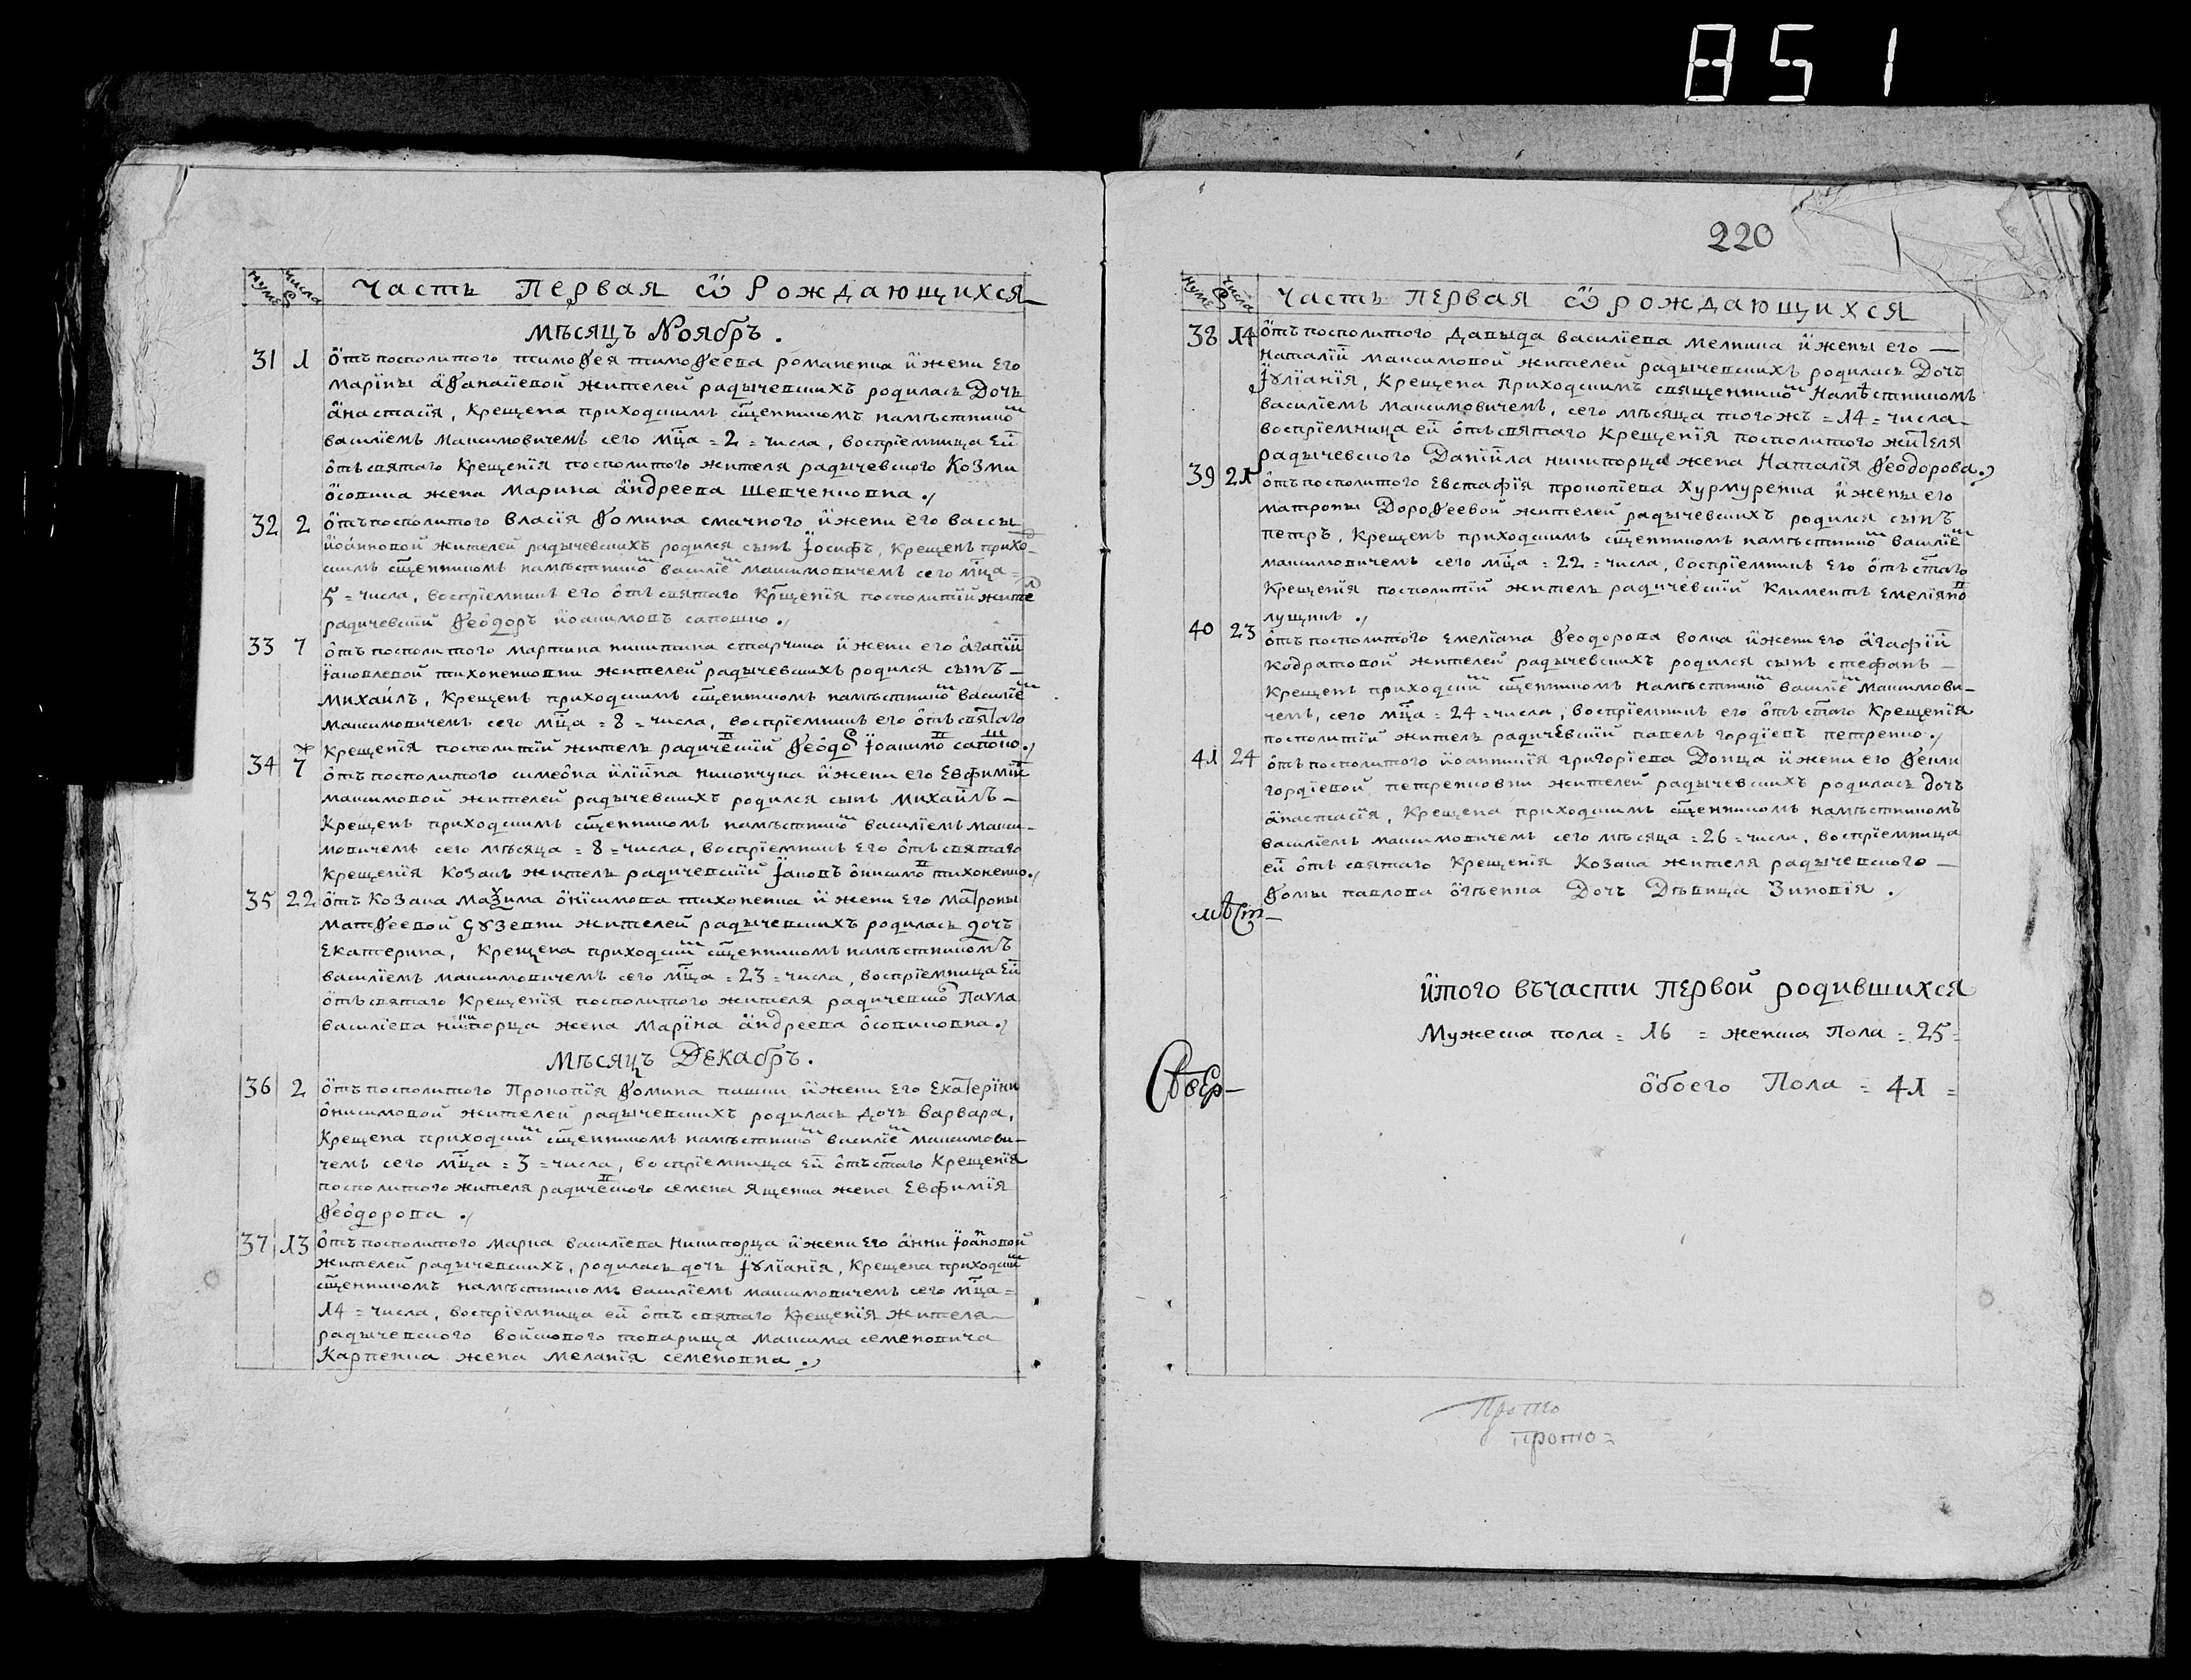 851
нумеръ числа Часть Первая ѿ Рождающихся
Мѣсяцъ Ноябръ.
31 1 ѿтъ посполитого тимоѳея тимоѳеева романенка и жени Его
марїны аѳанасїевой жителей радычевскихъ родиласъ Дочъ
анастасїя, Крещена приходскимъ сщенникомъ намѣстнико
василїемъ максимовичемъ сего мца = 2 = числа, воспрїемница Ей
отъ святаго Крещенїя посполитого жителя радычевского Козми
осовика жена Марина андреева Шевченковна.
32 2 отъ посполитого власїя Ѳомина смачного и жени его вассы
иоанновой жителей радычевскихъ родился сынъ Іосифъ, Крещенъ прихо
скимъ сщенникомъ намѣстнико василїе максимовичемъ сего мца =
5 = числа, воспрїемникъ его отъ святаго Крщенїя посполитїй жите
радичевскїй Ѳеодоръ иоакимовъ сапошко.
33 7 отъ посполитого мартина никитина старчика и жени его агапїй
яковлевой тихоненковни жителей радычевскихъ родился сынъ
михаилъ, Крещенъ приходскимъ сщенникомъ намѣстнико василїе
максимовичемъ сего мца = 8 = числа, воспрїемникъ его отъ святаго
Крещенїя посполитїй житель радичевскїй Ѳеодо Іоакимо сапошко.
34 7 отъ посполитого симеона илїина никончука и жени его Евфимїй
максимовой жителей радычевскихъ родился сынъ Михаилъ
Крещенъ приходскимъ сщенникомъ намѣстнико василїемъ макси-
мовичемъ сего мѣсяца = 8 = числа, воспрїемникъ Его отъ святаго
Крещенїя Козакъ житель радичевскїй яковъ онисимо тихоненко.
35 22 отъ Козака Маѯима онїсимова тихоненка и жени Его Матроны
матѳеевой гузевни жителей радычевскихъ родиласъ дочъ
Екатерина, Крещена приходски сщенникомъ намѣстникомъ
василїемъ максимовичемъ сего мца = 23 = числа, воспрїемница Ей
отъ святаго Крещенїя посполитого жителя радичевско Павла
василїева никторца жена Марїна андреева осовиковна.
Мѣсяцъ ДЕкабръ.
36 2 отъ посполитого Прокопїя Ѳомина пашки и жени Его Екатерїни
онисимовой жителей радычевскихъ родиласъ дочъ Варвара,
Крещена приходски сщенникомъ намѣстнико василїе максимови-
чемъ сего мца = 3 = числа, воспрїемница Ей отъ стаго Крещенїя
посполитого жителя радического семена Ященка жена Евфимїя
Ѳеодорова.
37 13 отъ посполитого Марка василїева Никиторца и жени Его анни Іоанновой
жителей радычевскихъ, родиласъ дочъ Іулїанїя, Крещена приходски
сщенникомъ намѣстникомъ василїемъ максимовичемъ сего мца =
14 = числа, воспрїемница ей отъ святаго Крещенїя жителя
радычевского войскового товарища максима семеновича
Карпенка жена меланїя семеновна.
220
нумеръ числа Часть ПЕрвая ѿ рождающихся
38 14 отъ посполитого давыда василїева мелника и жены его
наталїй максимовой жителей радычевскихъ родиласъ Дочъ
Іулїанїя, Крещена Приходскимъ священнико Намѣстникомъ
василїемъ максимовичемъ, сего мѣсяца тогожъ = 14 = числа
воспрїемница ей отъ святаго Крещенїя посполитого жителя
радычевского Данїила никиторца жена Наталїя Ѳеодорова.
39 21 отъ посполитого Евстафїя прокопїева Хурмуренка и жены его
матроны Дороѳеевой жителей радычевскихъ родился сынъ
петръ, Крещенъ приходскимъ сщенникомъ намѣстнико василїе
максимовичемъ сего мца = 22 = числа, воспрїемникъ Его отъ стаго
Крещенїя посполитїй житель радичевскїй Климентъ Емелїяно
лущикъ.
40 23 отъ посполитого Емелїана Ѳеодорова волка и жени Его агафїй
Кодратовой жителей радычевскихъ родился сынъ стефанъ
Крещенъ приходскї сщенникомъ намѣстнико василїе Максимови-
чемъ, сего мца = 24 = числа, воспрїемникъ его отъ стаго Крещенїя
посполитїй житель радичЕвскїй павелъ гордїевъ петренко.
41 24 отъ посполитого иоанникїя григорїева Донца и жени его Ѳекли
гордїевой петренковни жителей радычевскихъ родиласъ дочъ
анастасїя, Крещена приходскимъ сщенникомъ намѣстникомъ
василїемъ максимовичемъ сего мѣсяца = 26 = числа, воспрїемница
ей отъ святаго Крещенїя Козака жителя радычевского
Ѳомы павлова огїенка Дочъ Дѣвица Зиновїя.
итого въчасти ПЕрвой родившихся
Мужеска пола = 16 = женска Пола = 25 =
обоего Пола = 41 =